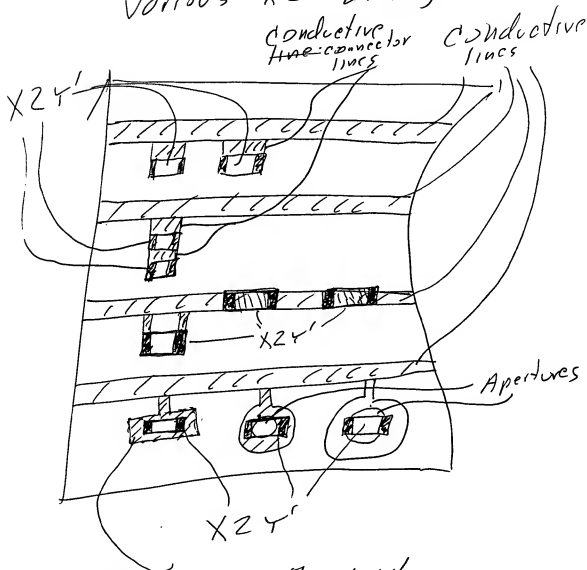 Various
Conductive
line connector
lines
Conductive
lines
X2Y'
X2Y'
Apertures
X2Y'